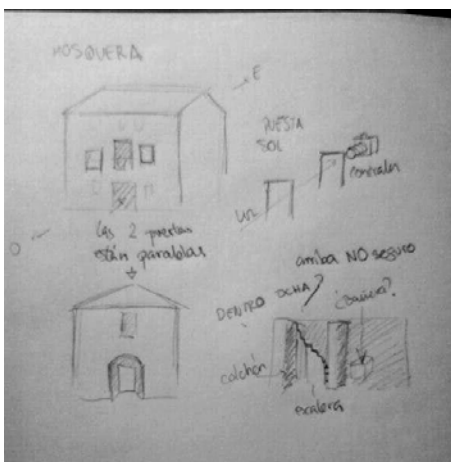 MOSQUERA
E
PUESTA
SOL
contraluz
luz
O
las 2 puertas
están paralelas
arriba NO seguro
DENTRO
colchón
escalera